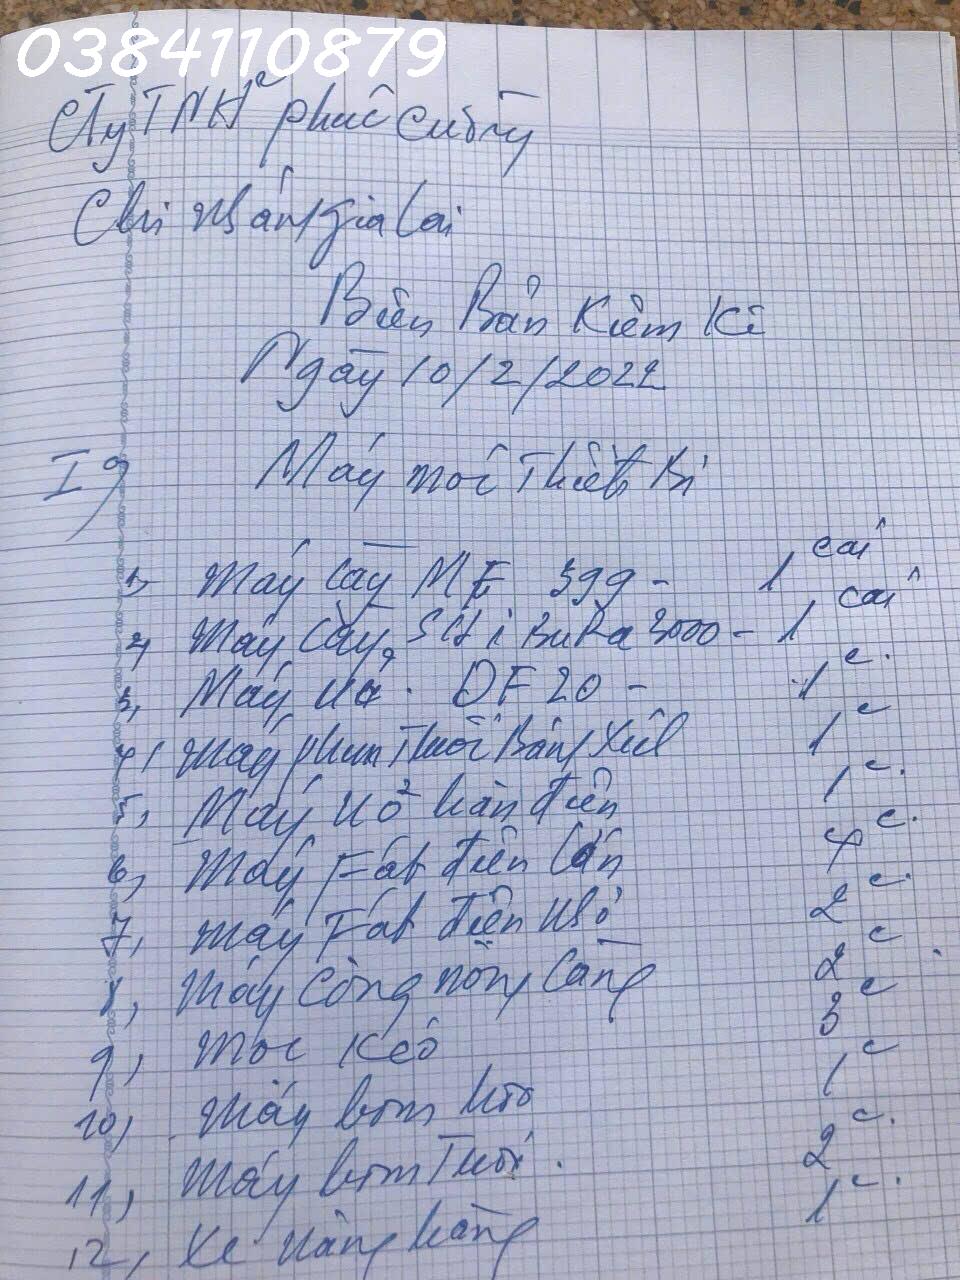 0384110879
Cty TNHH Phúc Cường
Chi nhánh Gia Lai
Biên Bản Kiểm Kê
Ngày 10/2/2022
I, Máy móc Thiết Bị
1, Máy cày MF 399 - 1 cái
2, Máy cày, SHiBuRa 3000 - 1 cái
3, Máy DF 20 - 1 c.
4, Máy phun Thuốc Bằng 1 c
5, Máy nổ hàn điện 1 c.
6, Máy Fát điện lớn 4 c.
7, Máy Fát điện nhỏ 2 c.
8, Máy Công nông Càng 2 c
9, Moóc Kéo 3 c
10, Máy bơm hơi 1 c
11, Máy bơm Tưới. 2 c.
12, Xe nâng hàng 1 c.